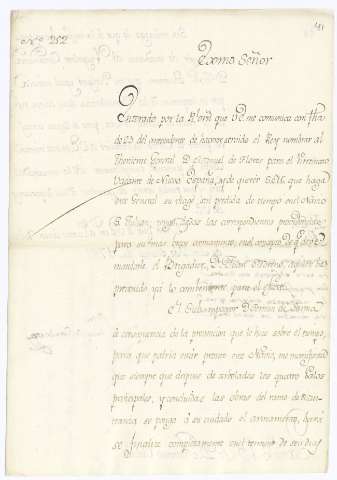 N.º 252
Exmo Señor
Enterado por la Rˡ ordⁿ que VE me comunica con fha
de 23 del antecedente de haver servido el Rey nombrar al
Theniente General Dⁿ Manuel de Flores para el Virreinato
Vacante de Nueva España, y de querer S.M. que haga
este General su viage sin perdida de tiempo en el Navio
Sⁿ Julian, tengo dadas las correspondientes providencias
para su mas breve armamento, en el concepto de que
mandarle el Brigadier Dⁿ Juan Moreno, a quien he
prevenido ya lo conveniente para el efecto.
El Subinspector Dⁿ
à consequencia de la prevencion que le hice sobre el tiempo
para que podria estar pronto este Navio, me manifiesta
que siempre que despues de arbolados los quatro Palos
principales, y concluidas las obras del ramo de
se ponga à su cuidado el armamento, hará
se finalize completamente en el termino de seis dias